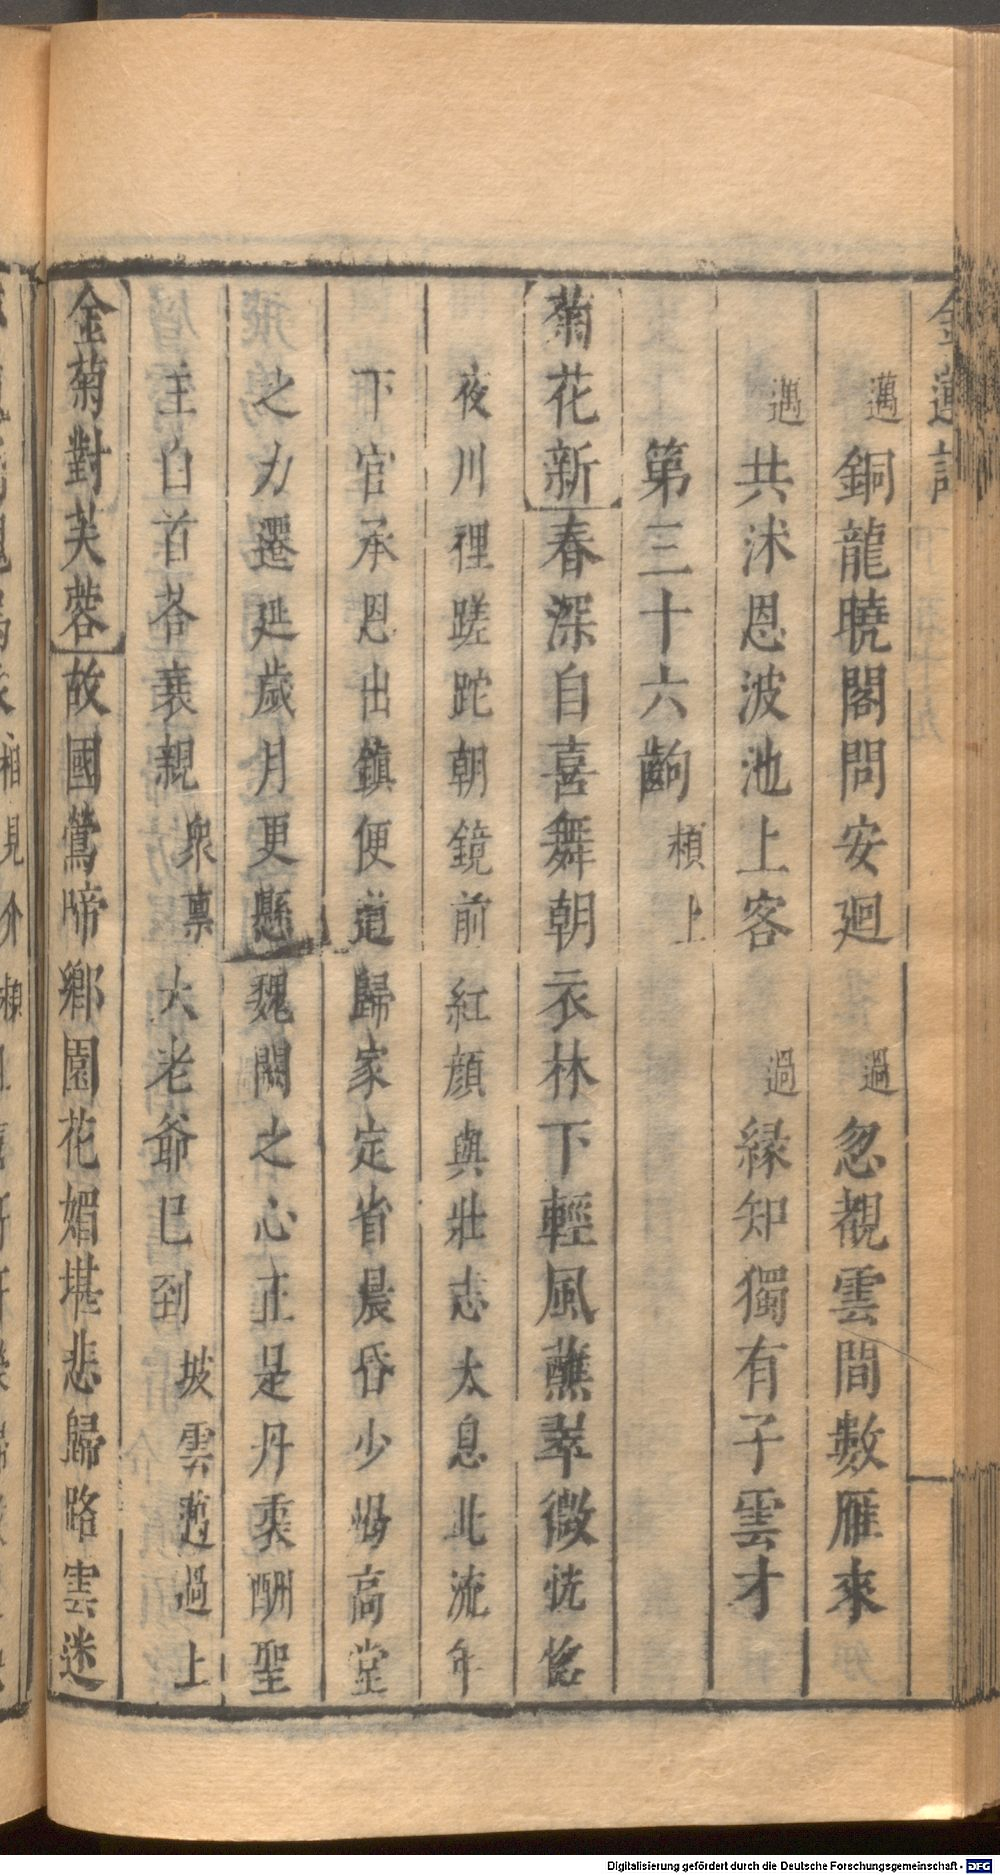 金蓮記
邁銅龍曉閣問安廻 過忽覩雲間數雁來
邁共沐恩波池上客 過緣知獨有子雲才
第三十六齣 頼上
菊花新春深自喜舞朝衣林下輕風蘸翠微恍惚
夜川裡蹉跎朝鏡前紅顔與壯志太息此流年
下官承恩出鎮便道歸家定省晨昏少慰高堂
之力遷延歲月更懸魏闕之心正是丹衷酬聖
主白首荅衰親衆禀大老爺已到坡雲邁過上
金菊對芙蓉故國鶯啼鄉園花媚堪悲歸路雲迷
Digitalisierung gefördert durch die Deutsche Forschungsgemeinschaft - DFG